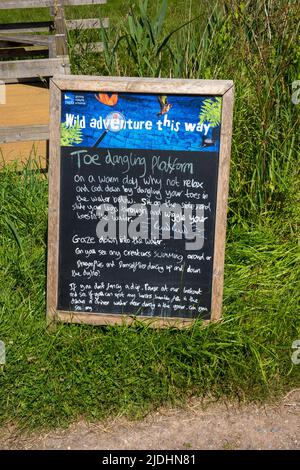 Wild adventure this way
Toe dangling platform
On a warm day why not relax
and cool down by dangling your toes in
the water below. Sit on the side and
slide your legs through and wiggle your
toes in the water
Gaze down into the water
Can you see any creatures swimming around or
Dragonflies and Damselflies darting up and down
the
If you don't fancy a dip. Pause at our lookout
and see if you can spot any
alamy
Image ID: 2JDHN81
www.alamy.com